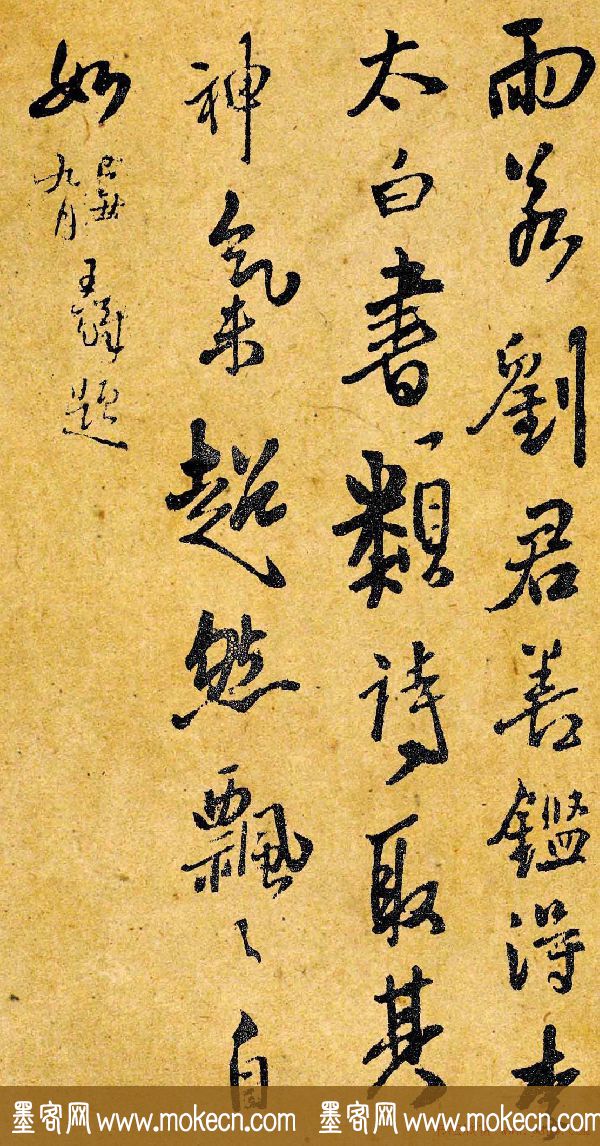 雨若劉君善鑑得李
太白書類詩取其
神氣来超然飄々自
如
九月
王鐸題
墨客网 www.mokecn.com 墨客网 www.mokecn.com